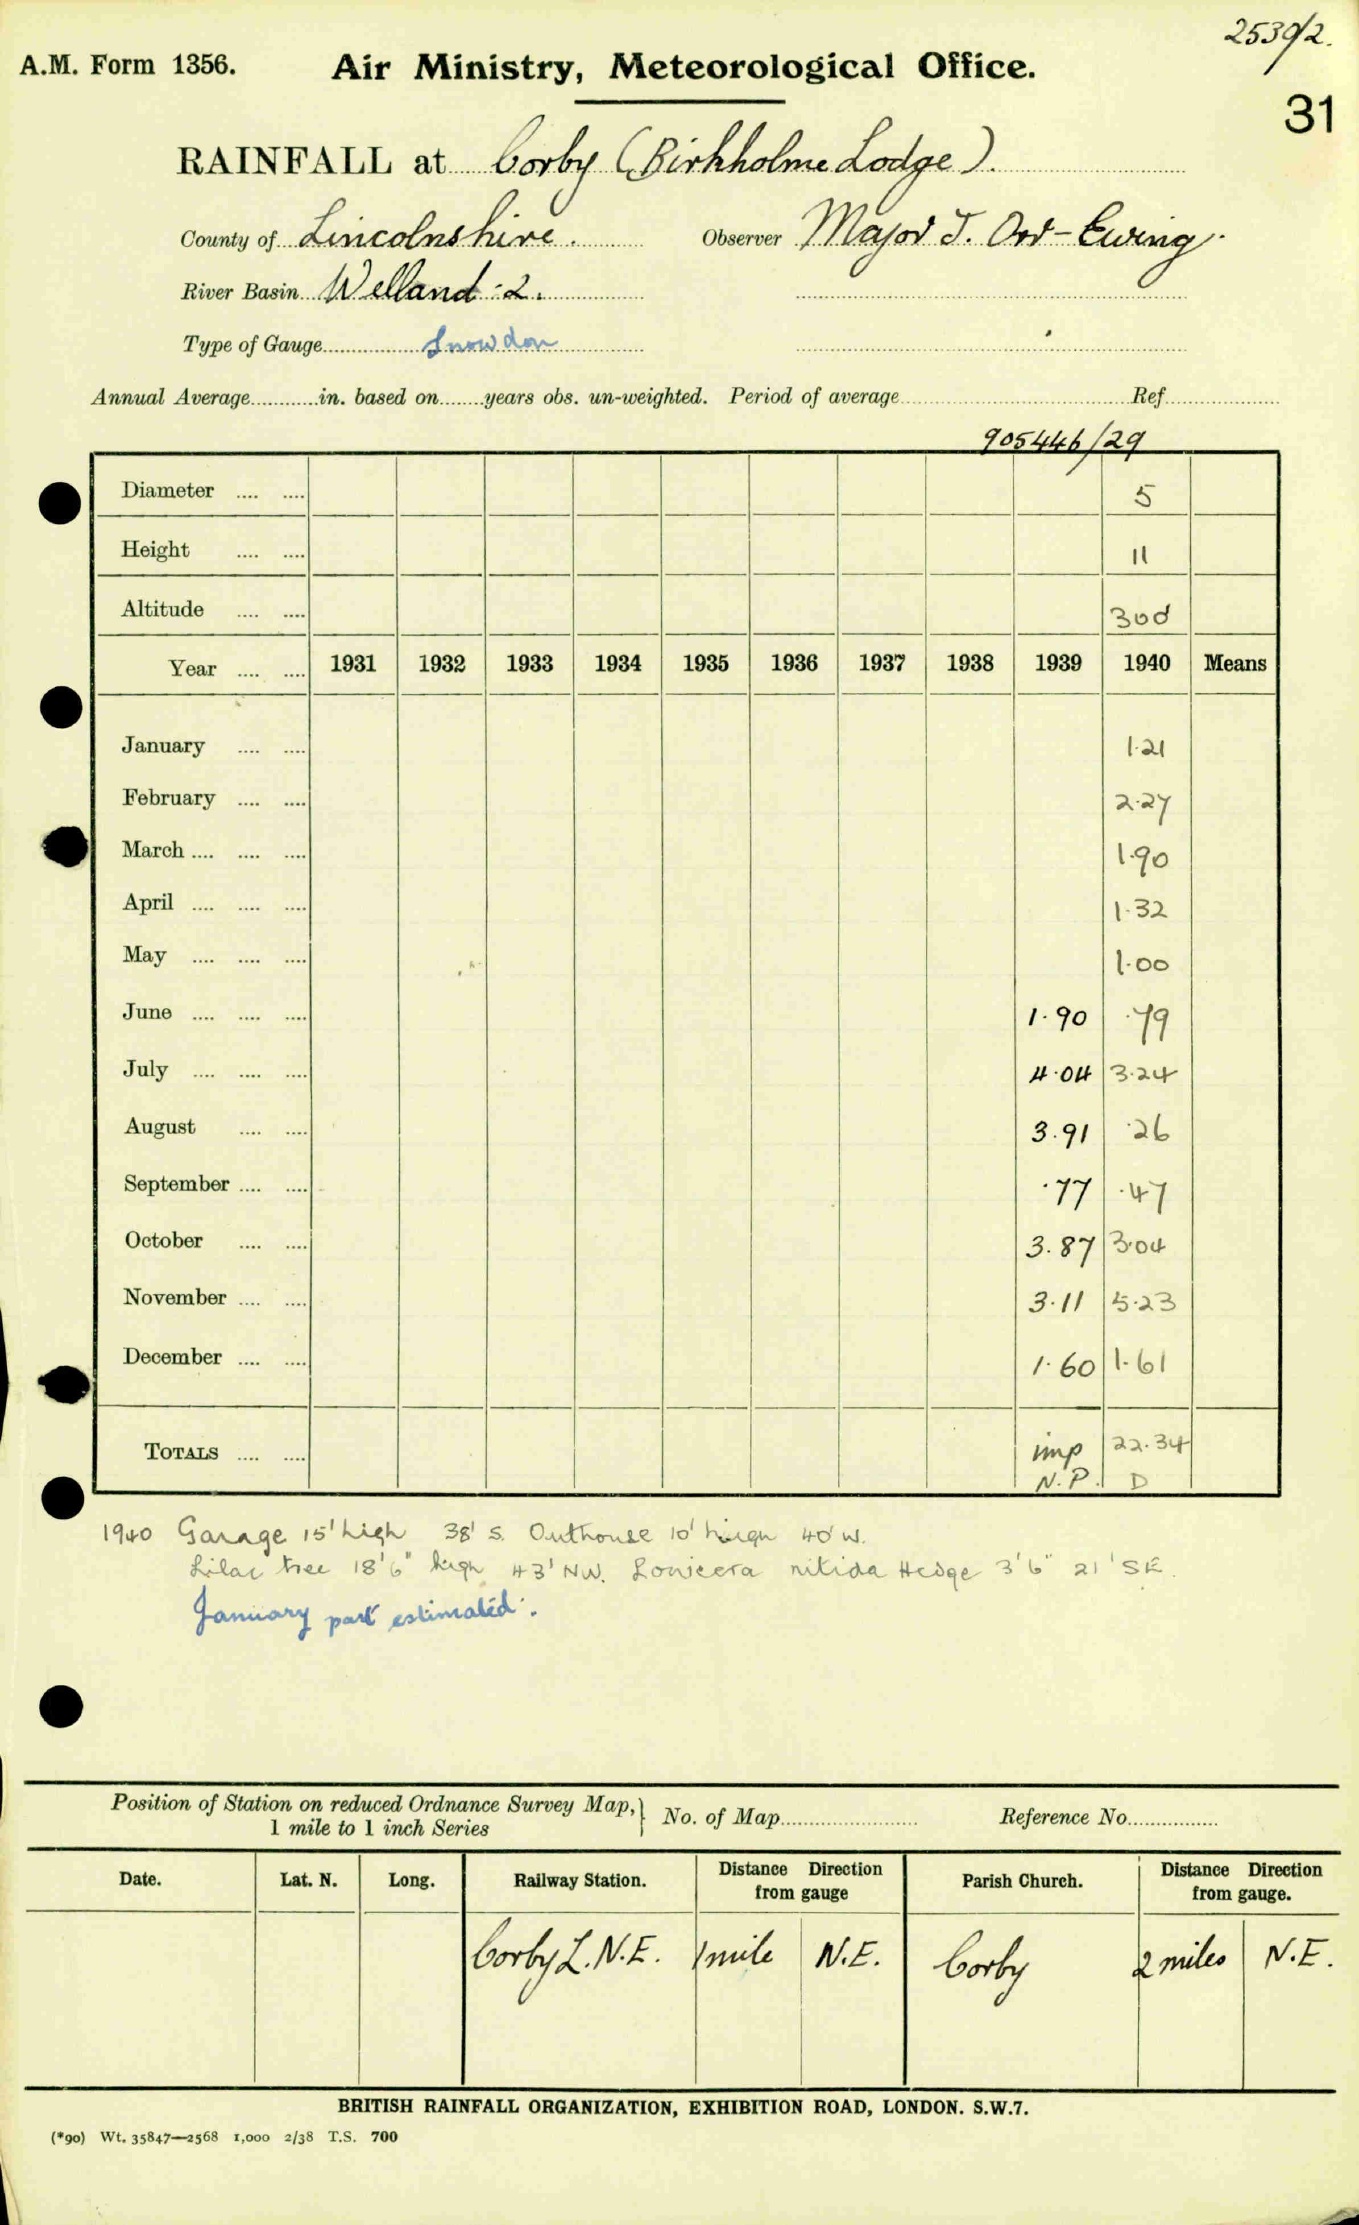 2539/2.
A.M. Form 1356.
Air Ministry, Meteorological Office.
31
RAINFALL at Corby (Birkholme Lodge).
County of Lincolnshire. Observer Major J. Orr-Ewing.
River Basin Welland-2.
Type of Gauge Snowdon
Annual Average in. based on years obs. un-weighted. Period of average Ref
905446/29
Diameter .... .... 5
Height .... .... 11
Altitude .... .... 300
Year .... .... 1931 1932 1933 1934 1935 1936 1937 1938 1939 1940 Means
January .... .... 1.21
February .... .... 2.27
March .... .... .... 1.90
April .... .... .... 1.32
May .... .... .... 1.00
June .... .... .... 1.90 .79
July .... .... .... 4.04 3.24
August .... .... 3.91 .26
September .... .... .77 .47
October .... .... 3.87 3.04
November .... .... 3.11 5.23
December .... .... 1.60 1.61
TOTALS .... .... imp 22.34
N.P. D
1940 Garage 15' high 38' S. Outhouse 10' high 40' W.
Lilac tree 18'6" high 43' NW. Lonicera nitida Hedge 3'6" 21' SE.
January part estimated.
Position of Station on reduced Ordnance Survey Map, 1 mile to 1 inch Series } No. of Map Reference No.
Date. Lat. N. Long. Railway Station. Distance Direction from gauge Parish Church. Distance Direction from gauge.
Corby L.N.E. 1 mile N.E. Corby 2 miles N.E.
BRITISH RAINFALL ORGANIZATION, EXHIBITION ROAD, LONDON. S.W.7.
(*90) Wt. 35847—2568 1,000 2/38 T.S. 700